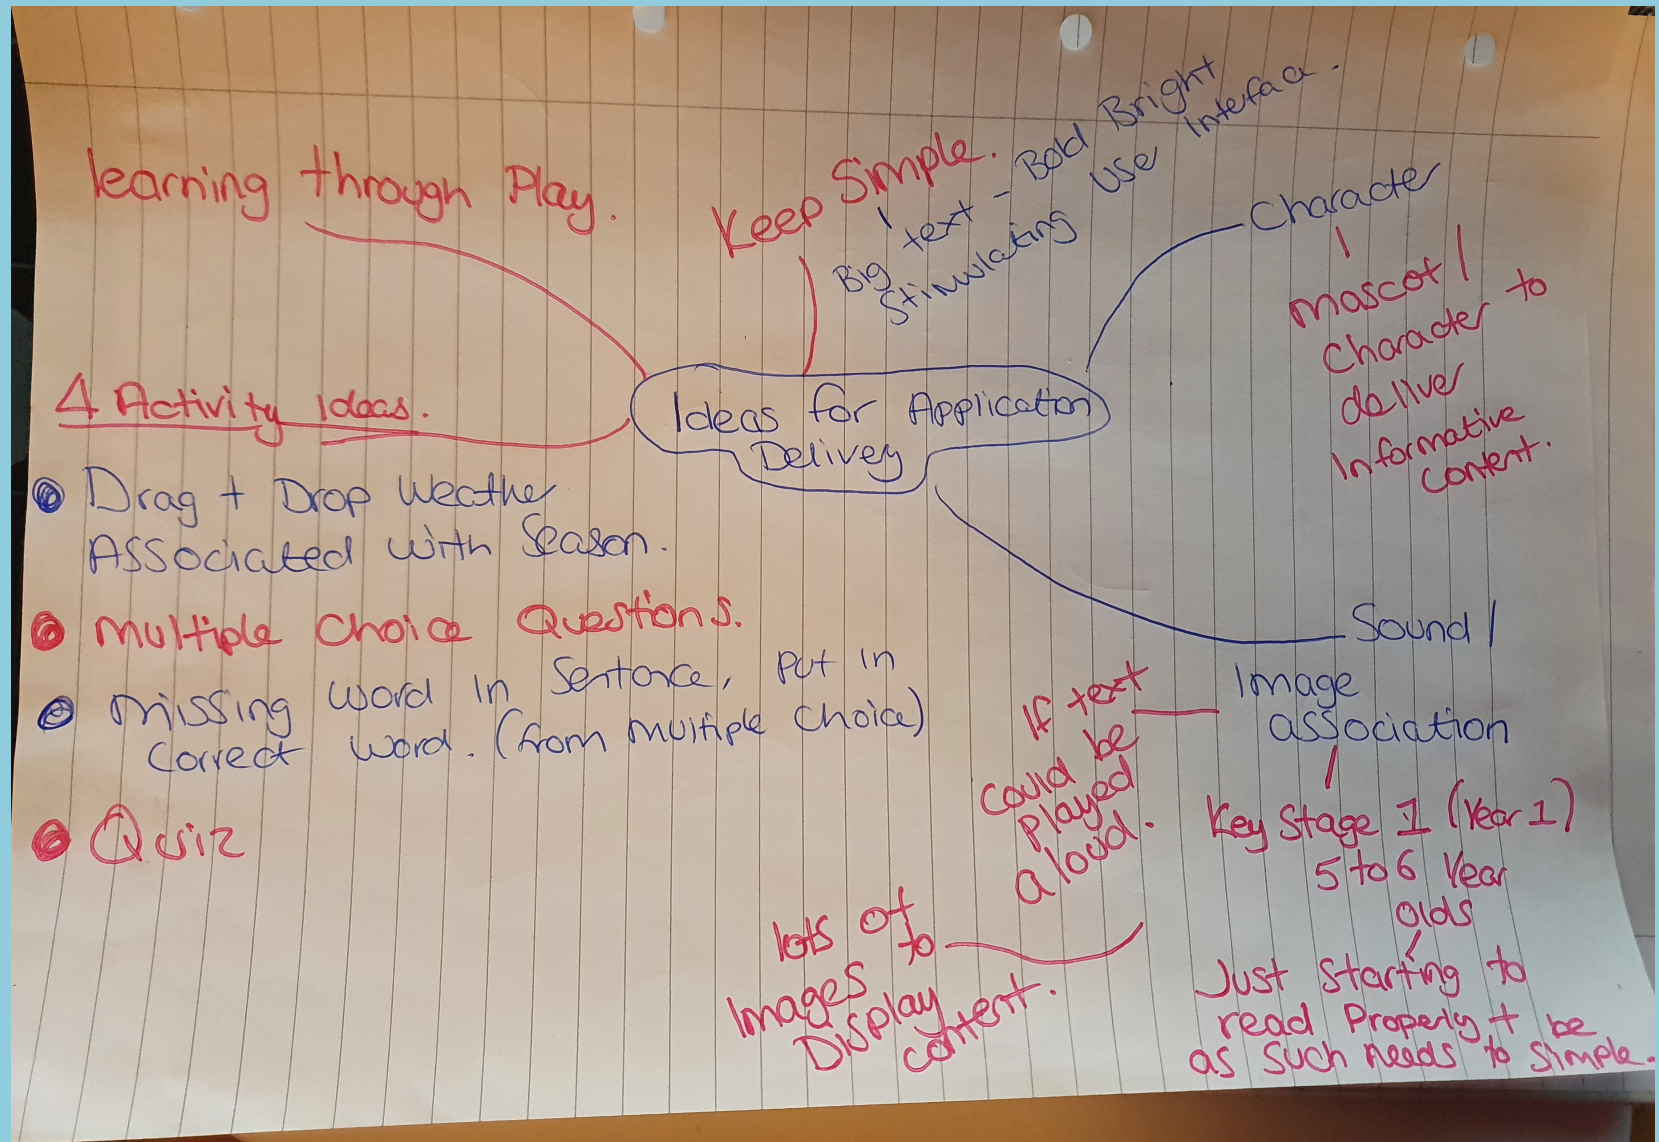 learning through Play.
Keep Simple.
Big text - Bold Bright
Stimulating Use Interface.
Character
Mascot /
Character to
deliver
Informative
content.
Ideas for Application
Delivery
4 Activity Ideas.
Drag + Drop Weather
Associated with Season.
Multiple Choice Questions.
Missing word in Sentence, Put in
correct word. (from multiple choice)
Quiz
Sound /
Image
association
If text
could be
played
aloud.
Key Stage 1 (Year 1)
5 to 6 Year
olds
Just Starting to
read Properly + be
as such needs to simple.
lots of
Images to
Display
content.